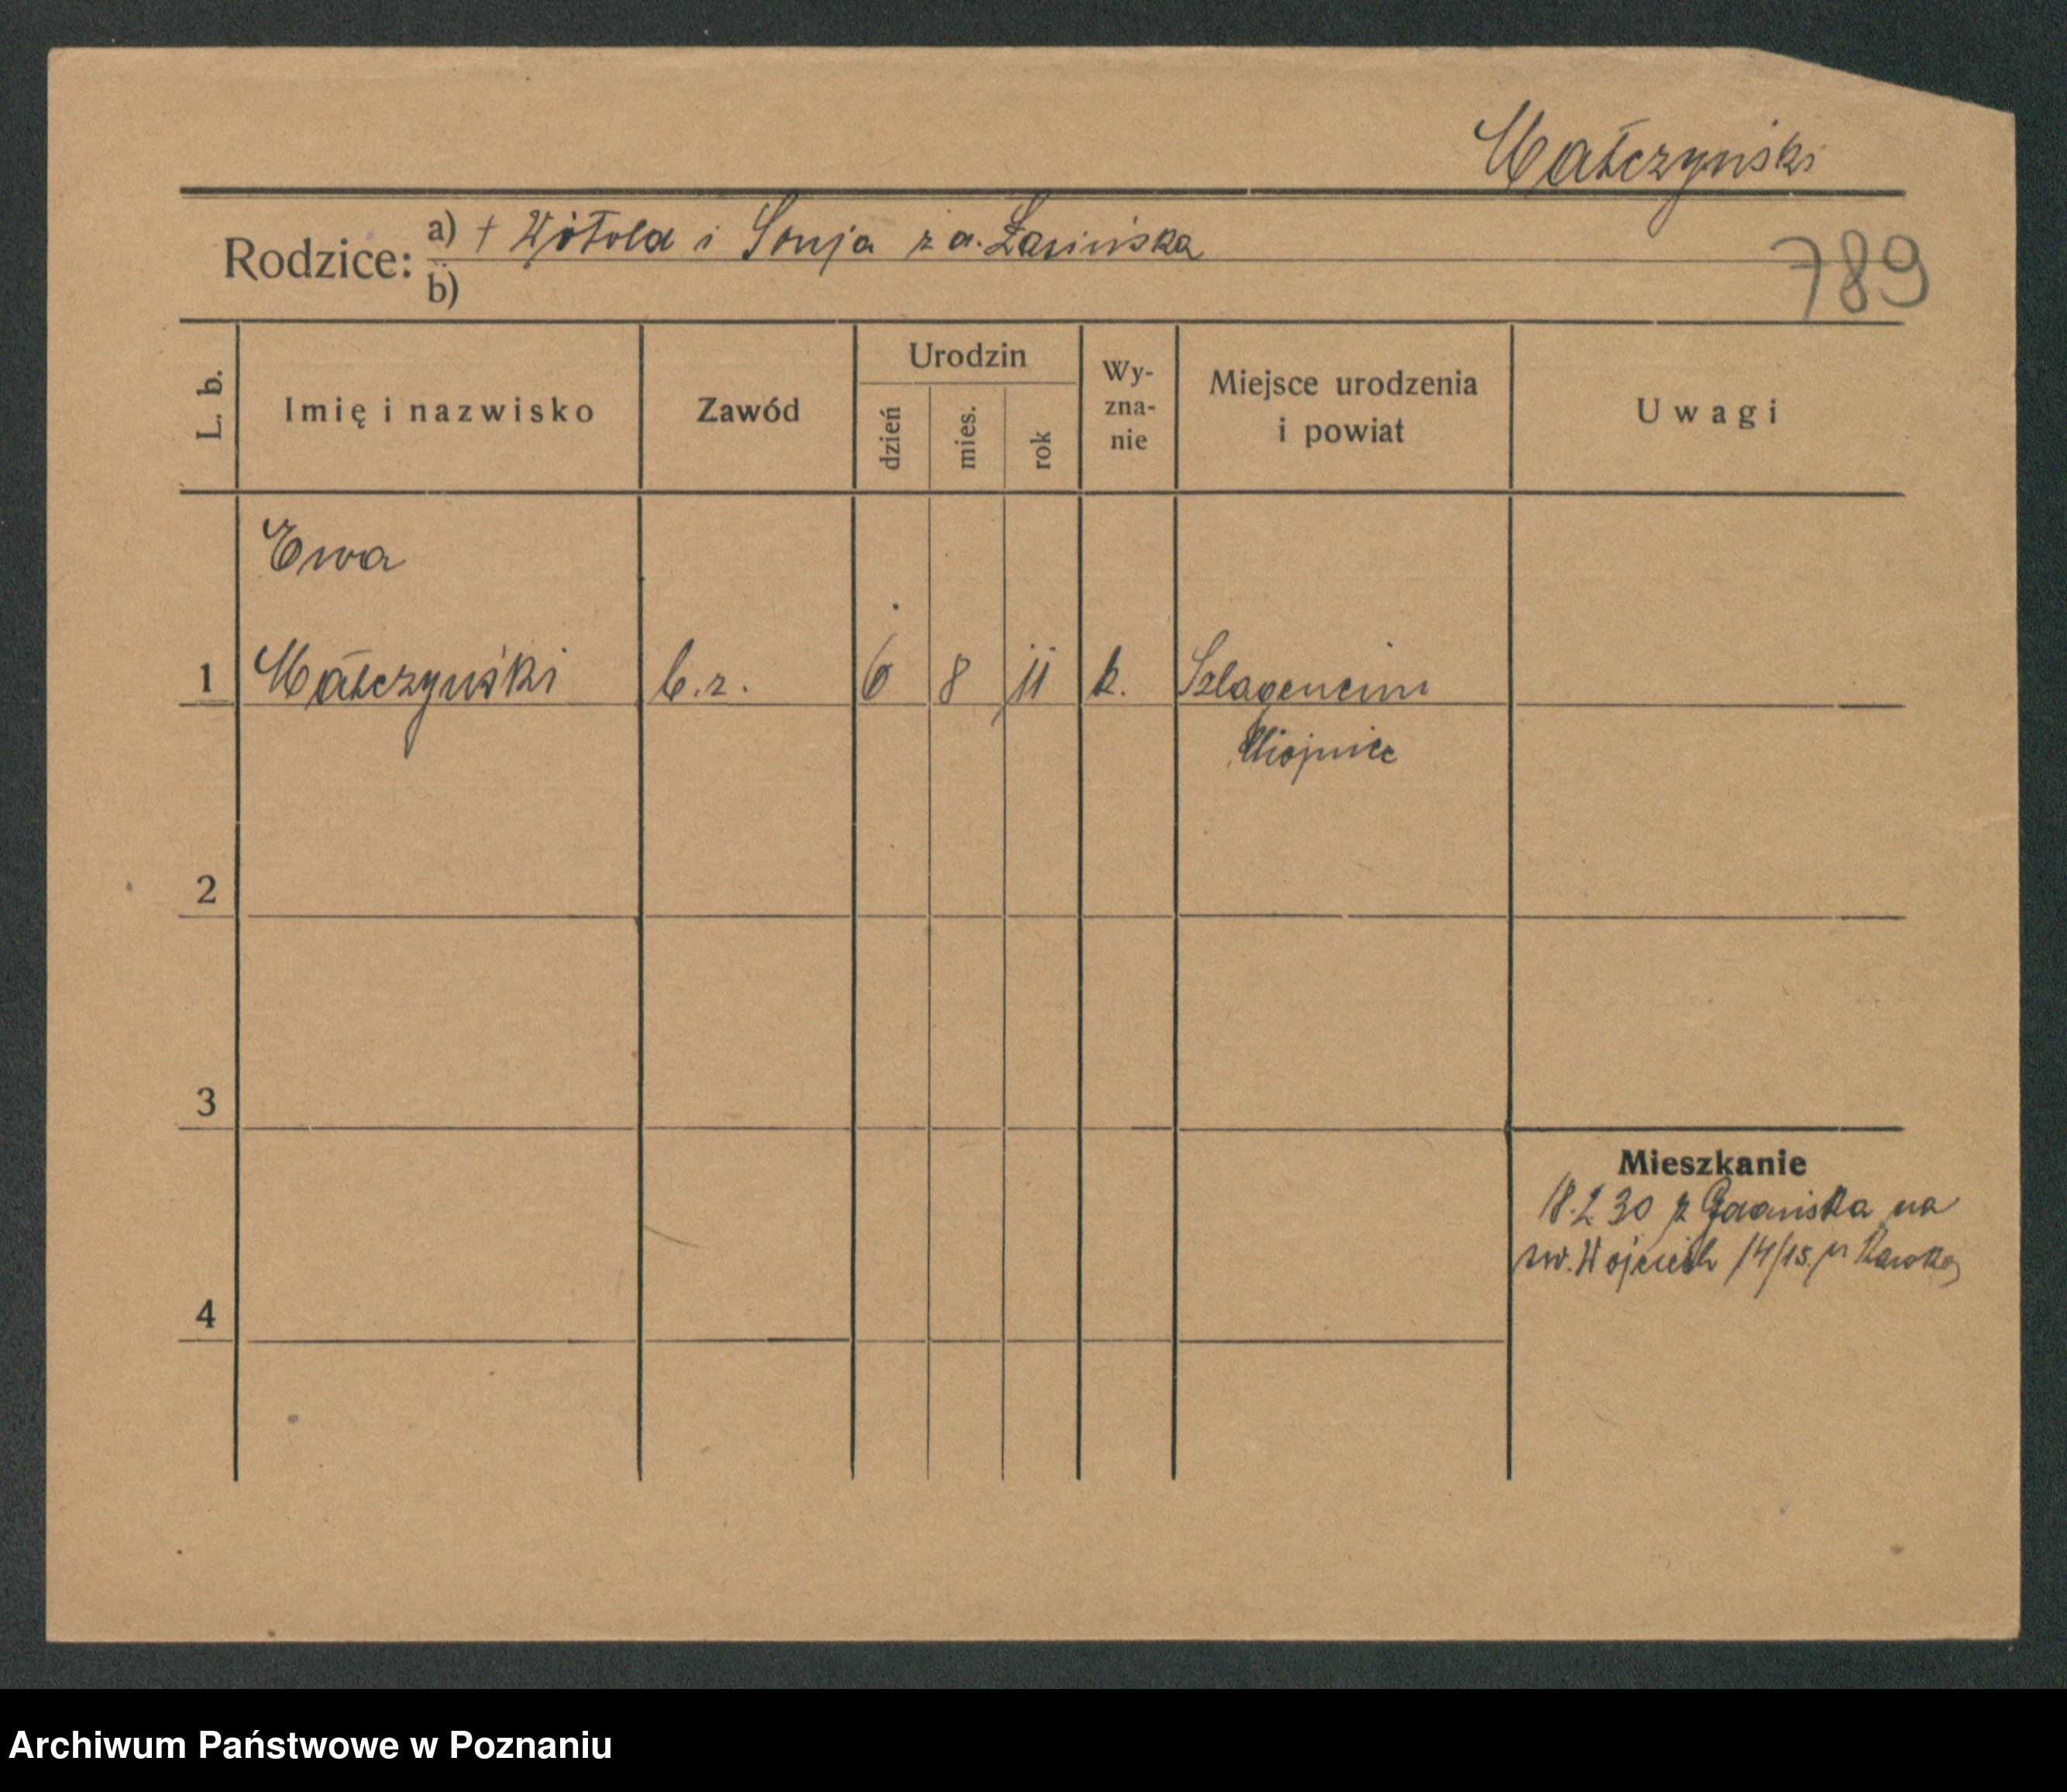 Małczyński
Rodzice: a) + Witold i Sonja z d. Łasińska
789
b)
L. b.
Imię i nazwisko
Zawód
Urodzin
dzień
mies.
rok
Wy-
zna-
nie
Miejsce urodzenia
i powiat
Uwagi
Ewa
1 Małczyński b.z. 6 8 11 k.
2
3
Mieszkanie
18.2 30 z Gdańska na
św. Wojciech 14/15.
4
Archiwum Państwowe w Poznaniu